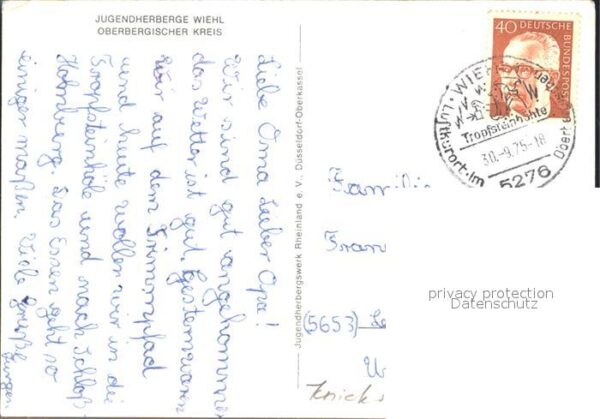 JUGENDHERBERGE WIEHL
OBERBERGISCHER KREIS
Liebe Oma Lieber Opa!
Wir sind gut angekommen
das Wetter ist gut. Gestern waren
wir auf dem Trimmpfad
und heute wollen wir in die
Tropfsteinhöle und nach Schloß
Homburg. Das Essen geht so
einiger maßen. Viele Grüße
Jürgen
Jugendherbergswerk Rheinland e. V., Düsseldorf-Oberkassel
40 DEUTSCHE
BUNDESPOST
WIEHL
Tropfsteinhöhle
30.-9.75-18
Luftkurort im
5276
Famili
Fran
(5653) Le
privacy protection
Datenschutz
Knick